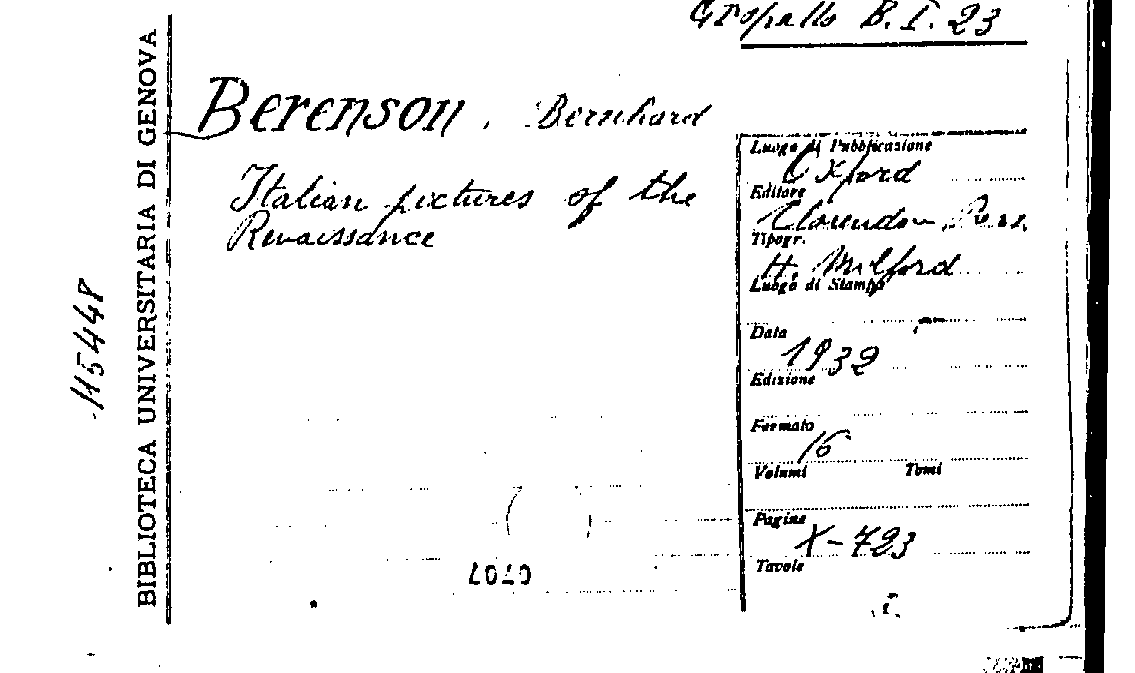 Gropallo B.I.23
Berenson, Bernhard
Italian pictures of the
Renaissance
Luogo di Pubblicazione
Oxford
Editore
Clarendon Press
Tipogr.
H. Milford
Luogo di Stampa
Data
1932
Edizione
Formato
16
Volumi Tomi
Pagine
X-723
Tavole
BIBLIOTECA UNIVERSITARIA DI GENOVA
115448